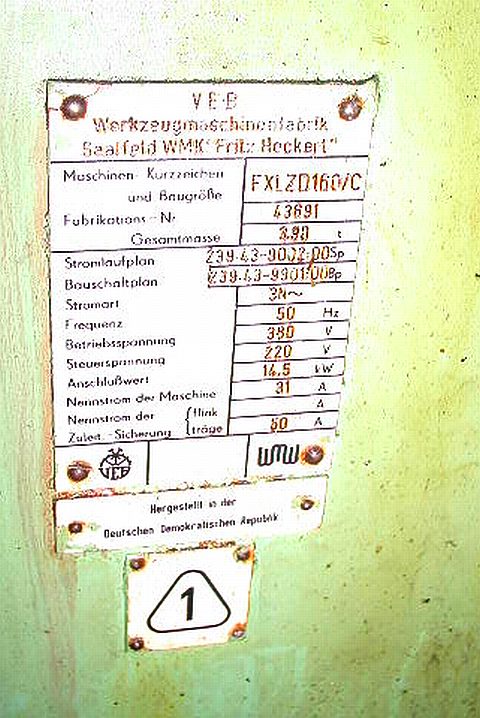 V E B
Werkzeugmaschinenfabrik
Saalfeld WMK "Fritz Heckert"
Maschinen-Kurzzeichen und Baugröße FXLZD160/C
Fabrikations-Nr 43691
Gesamtmasse 3.90 t
Stromlaufplan Z39-43-9002:00Sp
Bauschaltplan Z39-43-9901:00Bp
Stromart 3N~
Frequenz 50 Hz
Betriebsspannung 380 V
Steuerspannung 220 V
Anschlußwert 14.5 kW
Nennstrom der Maschine 31 A
Nennstrom der Zuleit.-Sicherung flink A
träge 50 A
VEB WMW
Hergestellt in der
Deutschen Demokratischen Republik
1